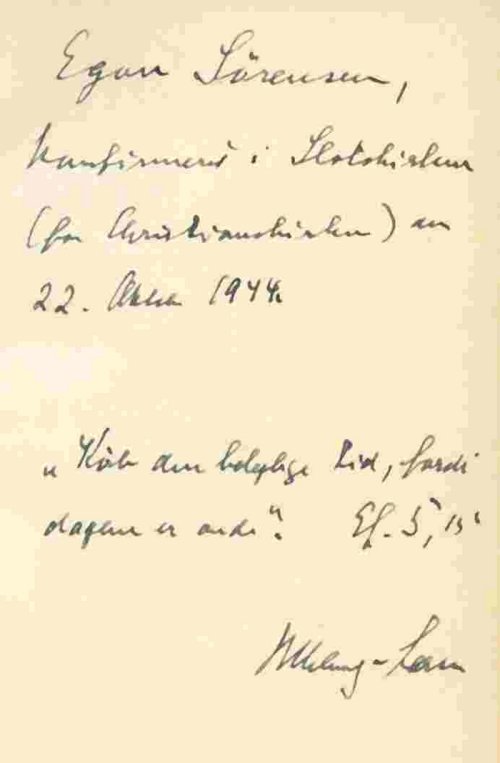 Egon Sörensen,
konfirmeret i Slotskirken
(for Christianskirken) den
22. Oktober 1944.
„Köb den belejlige Tid, fordi
dagene er onde". Ef. 5, 15